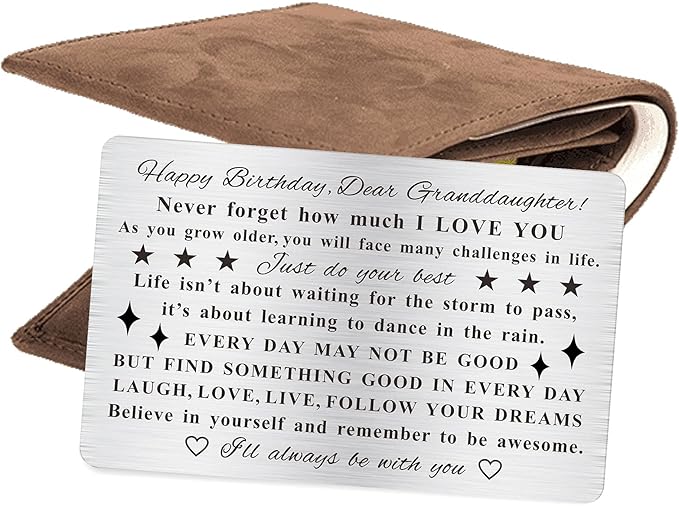 Happy Birthday, Dear Granddaughter!
Never forget how much I LOVE YOU
As you grow older, you will face many challenges in life.
Just do your best
Life isn't about waiting for the storm to pass,
it's about learning to dance in the rain.
EVERY DAY MAY NOT BE GOOD
BUT FIND SOMETHING GOOD IN EVERY DAY
LAUGH, LOVE, LIVE, FOLLOW YOUR DREAMS
Believe in yourself and remember to be awesome.
I'll always be with you